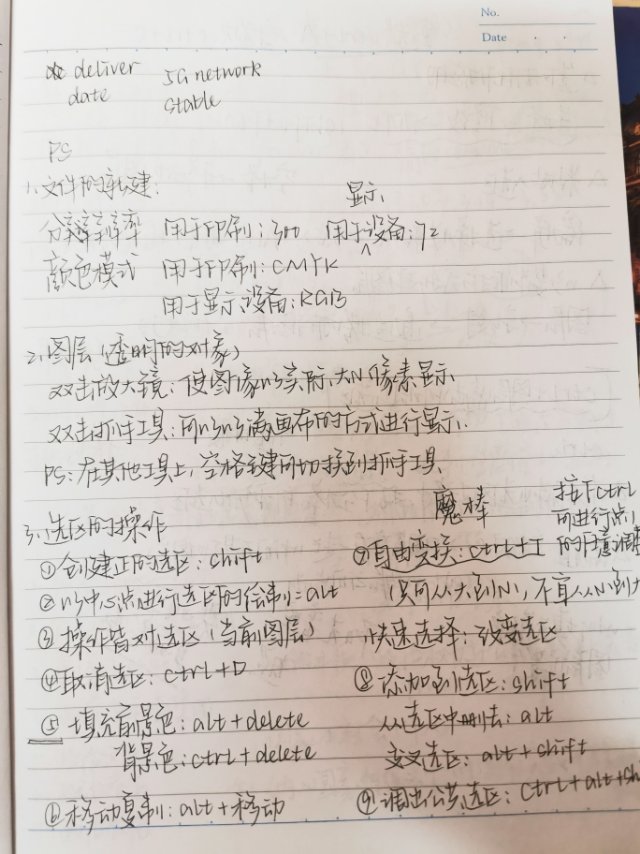 No.
Date
deliver 5G network
date stable
PS
1.文件的新建:
显示
分辨率 用于印刷:300 用于设备:72
颜色模式 用于印刷:CMYK
用于显示设备:RGB
2.图层(透明的对象)
双击放大镜:使图像以实际大小像素显示
双击抓手工具:所以以满画布的方式进行显示.
PS:在其他工具上,空格键可切换到抓手工具
3.选区的操作
魔棒
按下ctrl
可进行点
的随意调
①创建正的选区:shift
⑦自由变换:ctrl+T
②以中心点进行选区的绘制:alt
(只可从大到小,不宜从小到大
③操作皆对选区(当前图层)
快速选择:改变选区
④取消选区:ctrl+D
⑧添加到选区:shift
⑤填充前景色:alt+delete
从选区中删去:alt
背景色:ctrl+delete
交叉选区:alt+shift
⑥移动复制:alt+移动
⑨调出公共选区:ctrl+alt+sh